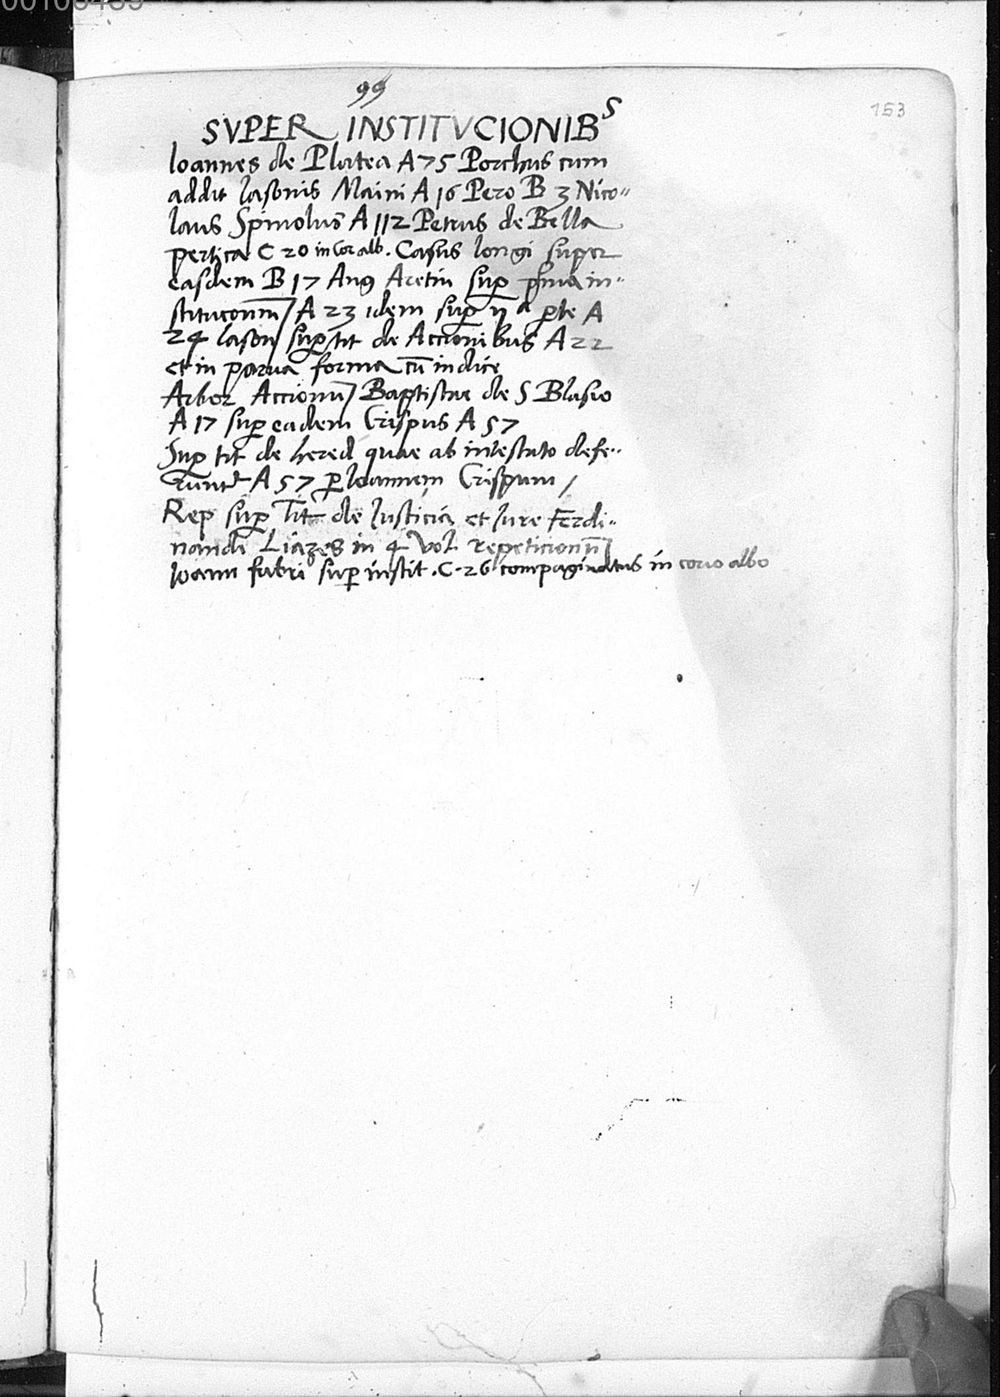 00100489
99
153
SVPER INSTITVCIONIBS
Ioannes de Platea A 75 Porchus cum
addit Iasonis Maini A 16 Pero B 3 Nico-
laus Spinolus A 112 Petrus de Bella
pertica C 20 in cor alb. Casus longi super
easdem B 17 Ang Aretin sup prima in-
stitucionum A 23 idem sup ii a pte A
24 Iason sup tit de Accionibus A 22
et in parua forma cū indice
Arbor Accionū Baptistae de S Blasio
A 17 sup eadem Crispus A 57
Sup tit de hered quae ab intestato defe-
runtr A 57 p Ioannem Crispum
Rep sup Tit de Iusticia et Iure Ferdi-
nandi Liazes in 4 Vol repeticionū
Ioann fabri sup instit . C . 26 compaginatus in corio albo